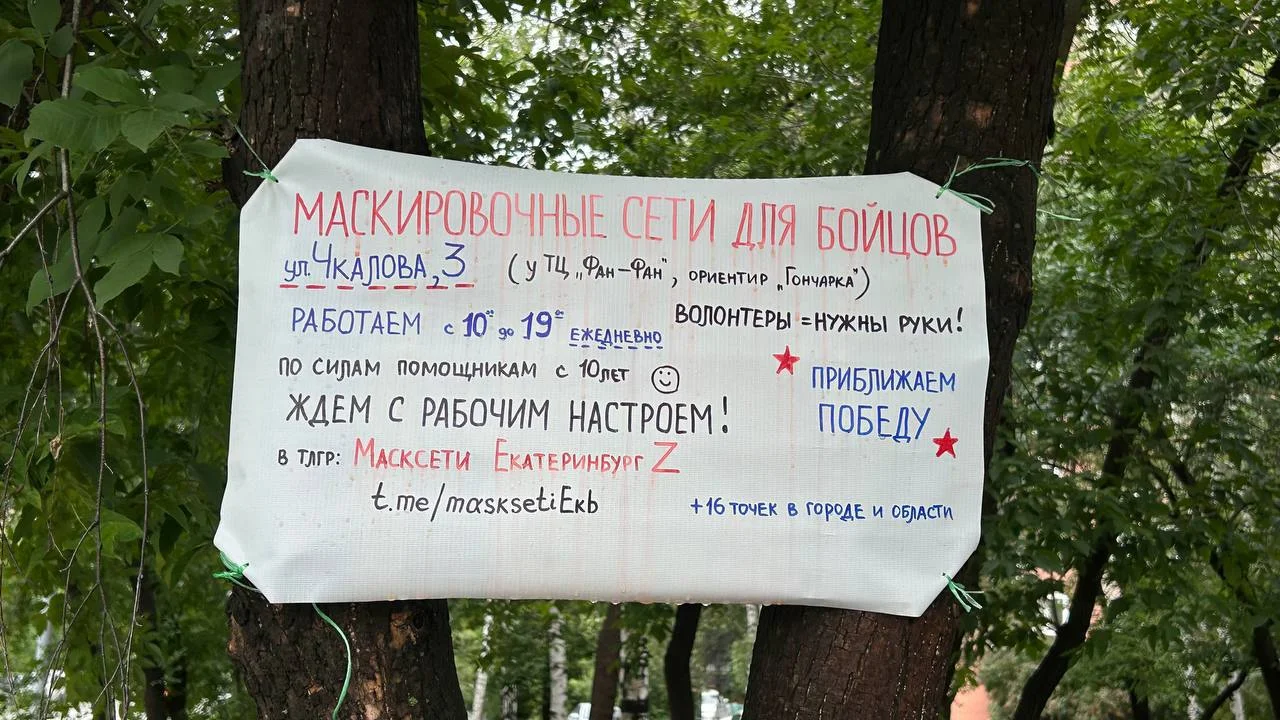 МАСКИРОВОЧНЫЕ СЕТИ ДЛЯ БОЙЦОВ
ул. ЧКАЛОВА, 3 (у ТЦ „Фан-Фан", ориентир „Гончарка")
РАБОТАЕМ с 10⁰⁰ до 19⁰⁰ ежедневно
ВОЛОНТЕРЫ = НУЖНЫ РУКИ!
ПО СИЛАМ ПОМОЩНИКАМ С 10 ЛЕТ
ЖДЕМ С РАБОЧИМ НАСТРОЕМ!
ПРИБЛИЖАЕМ
ПОБЕДУ
В ТЛГР: МАСКСЕТИ ЕКАТЕРИНБУРГ Z
t.me/masksetiEkb
+16 ТОЧЕК В ГОРОДЕ И ОБЛАСТИ